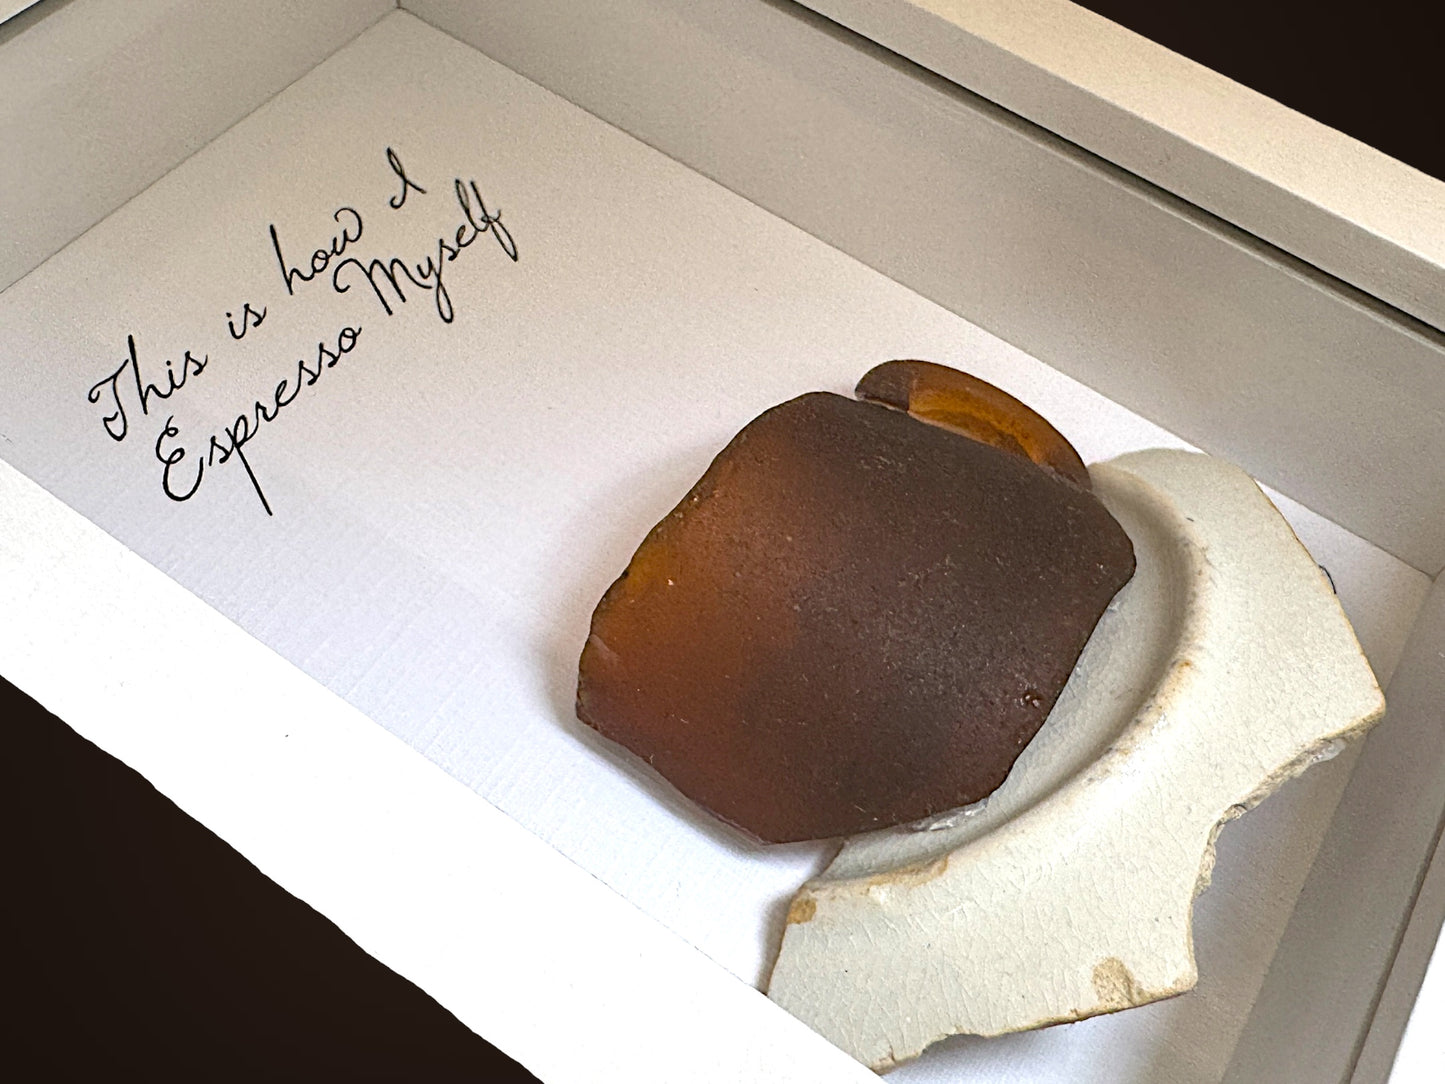 This is how I
Espresso Myself